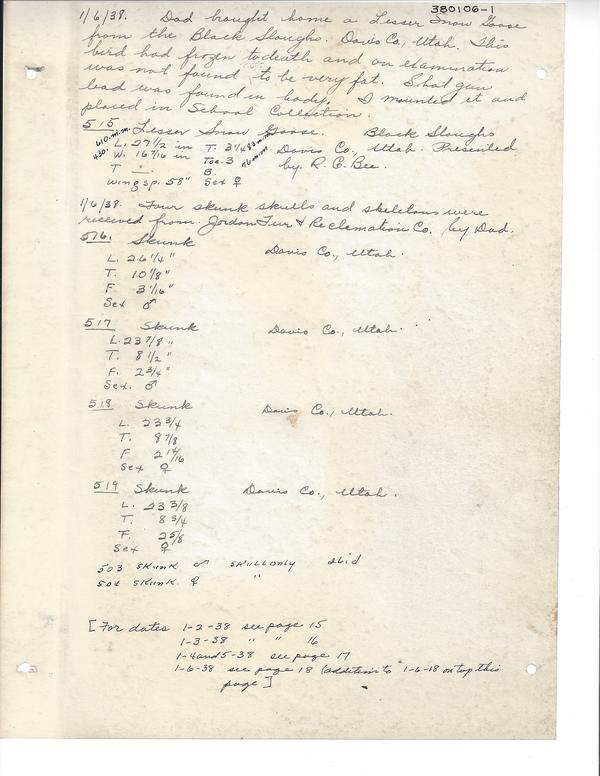 380106-1
1/6/38. Dad brought home a Lesser Snow Goose
from the Black Sloughs. Davis Co., Utah. This
bird had frozen to death and on examination
was not found to be very fat. Shot gun
lead was found in body. I mounted it and
placed in School Collection.
515 Lesser Snow Goose. Black Sloughs
610 m.m. L. 27 1/2 in T. 3 1/4 83mm Davis Co., Utah. Presented
430. W. 16 7/16 in Toe. 3 76mm by R. G. Bee.
T — B.
Wing sp. 58" Sex ♀
1/6/38. Four skunk skulls and skeletons were
received from Jordon Fur & Reclamation Co. by Dad.
516. Skunk Davis Co., Utah.
L. 26 1/4"
T. 10 1/8"
F 3 1/16"
Sex ♂
517 Skunk Davis Co., Utah.
L. 23 7/8"
T. 8 1/2"
F. 2 3/4"
Sex. ♂
518 Skunk Davis Co., Utah.
L. 23 3/4
T. 9 7/8
F 2 14/16
Sex ♀
519 Skunk Davis Co., Utah.
L. 23 3/8
T. 8 3/4
F. 2 5/8
Sex ♀
503 Skunk ♂ Skull only ibid
504 Skunk ♀ "
[For dates 1-2-38 see page 15
1-3-38 " " 16
1-4 and 5-38 see page 17
1-6-38 see page 18 (addition to 1-6-38 on top this
page]